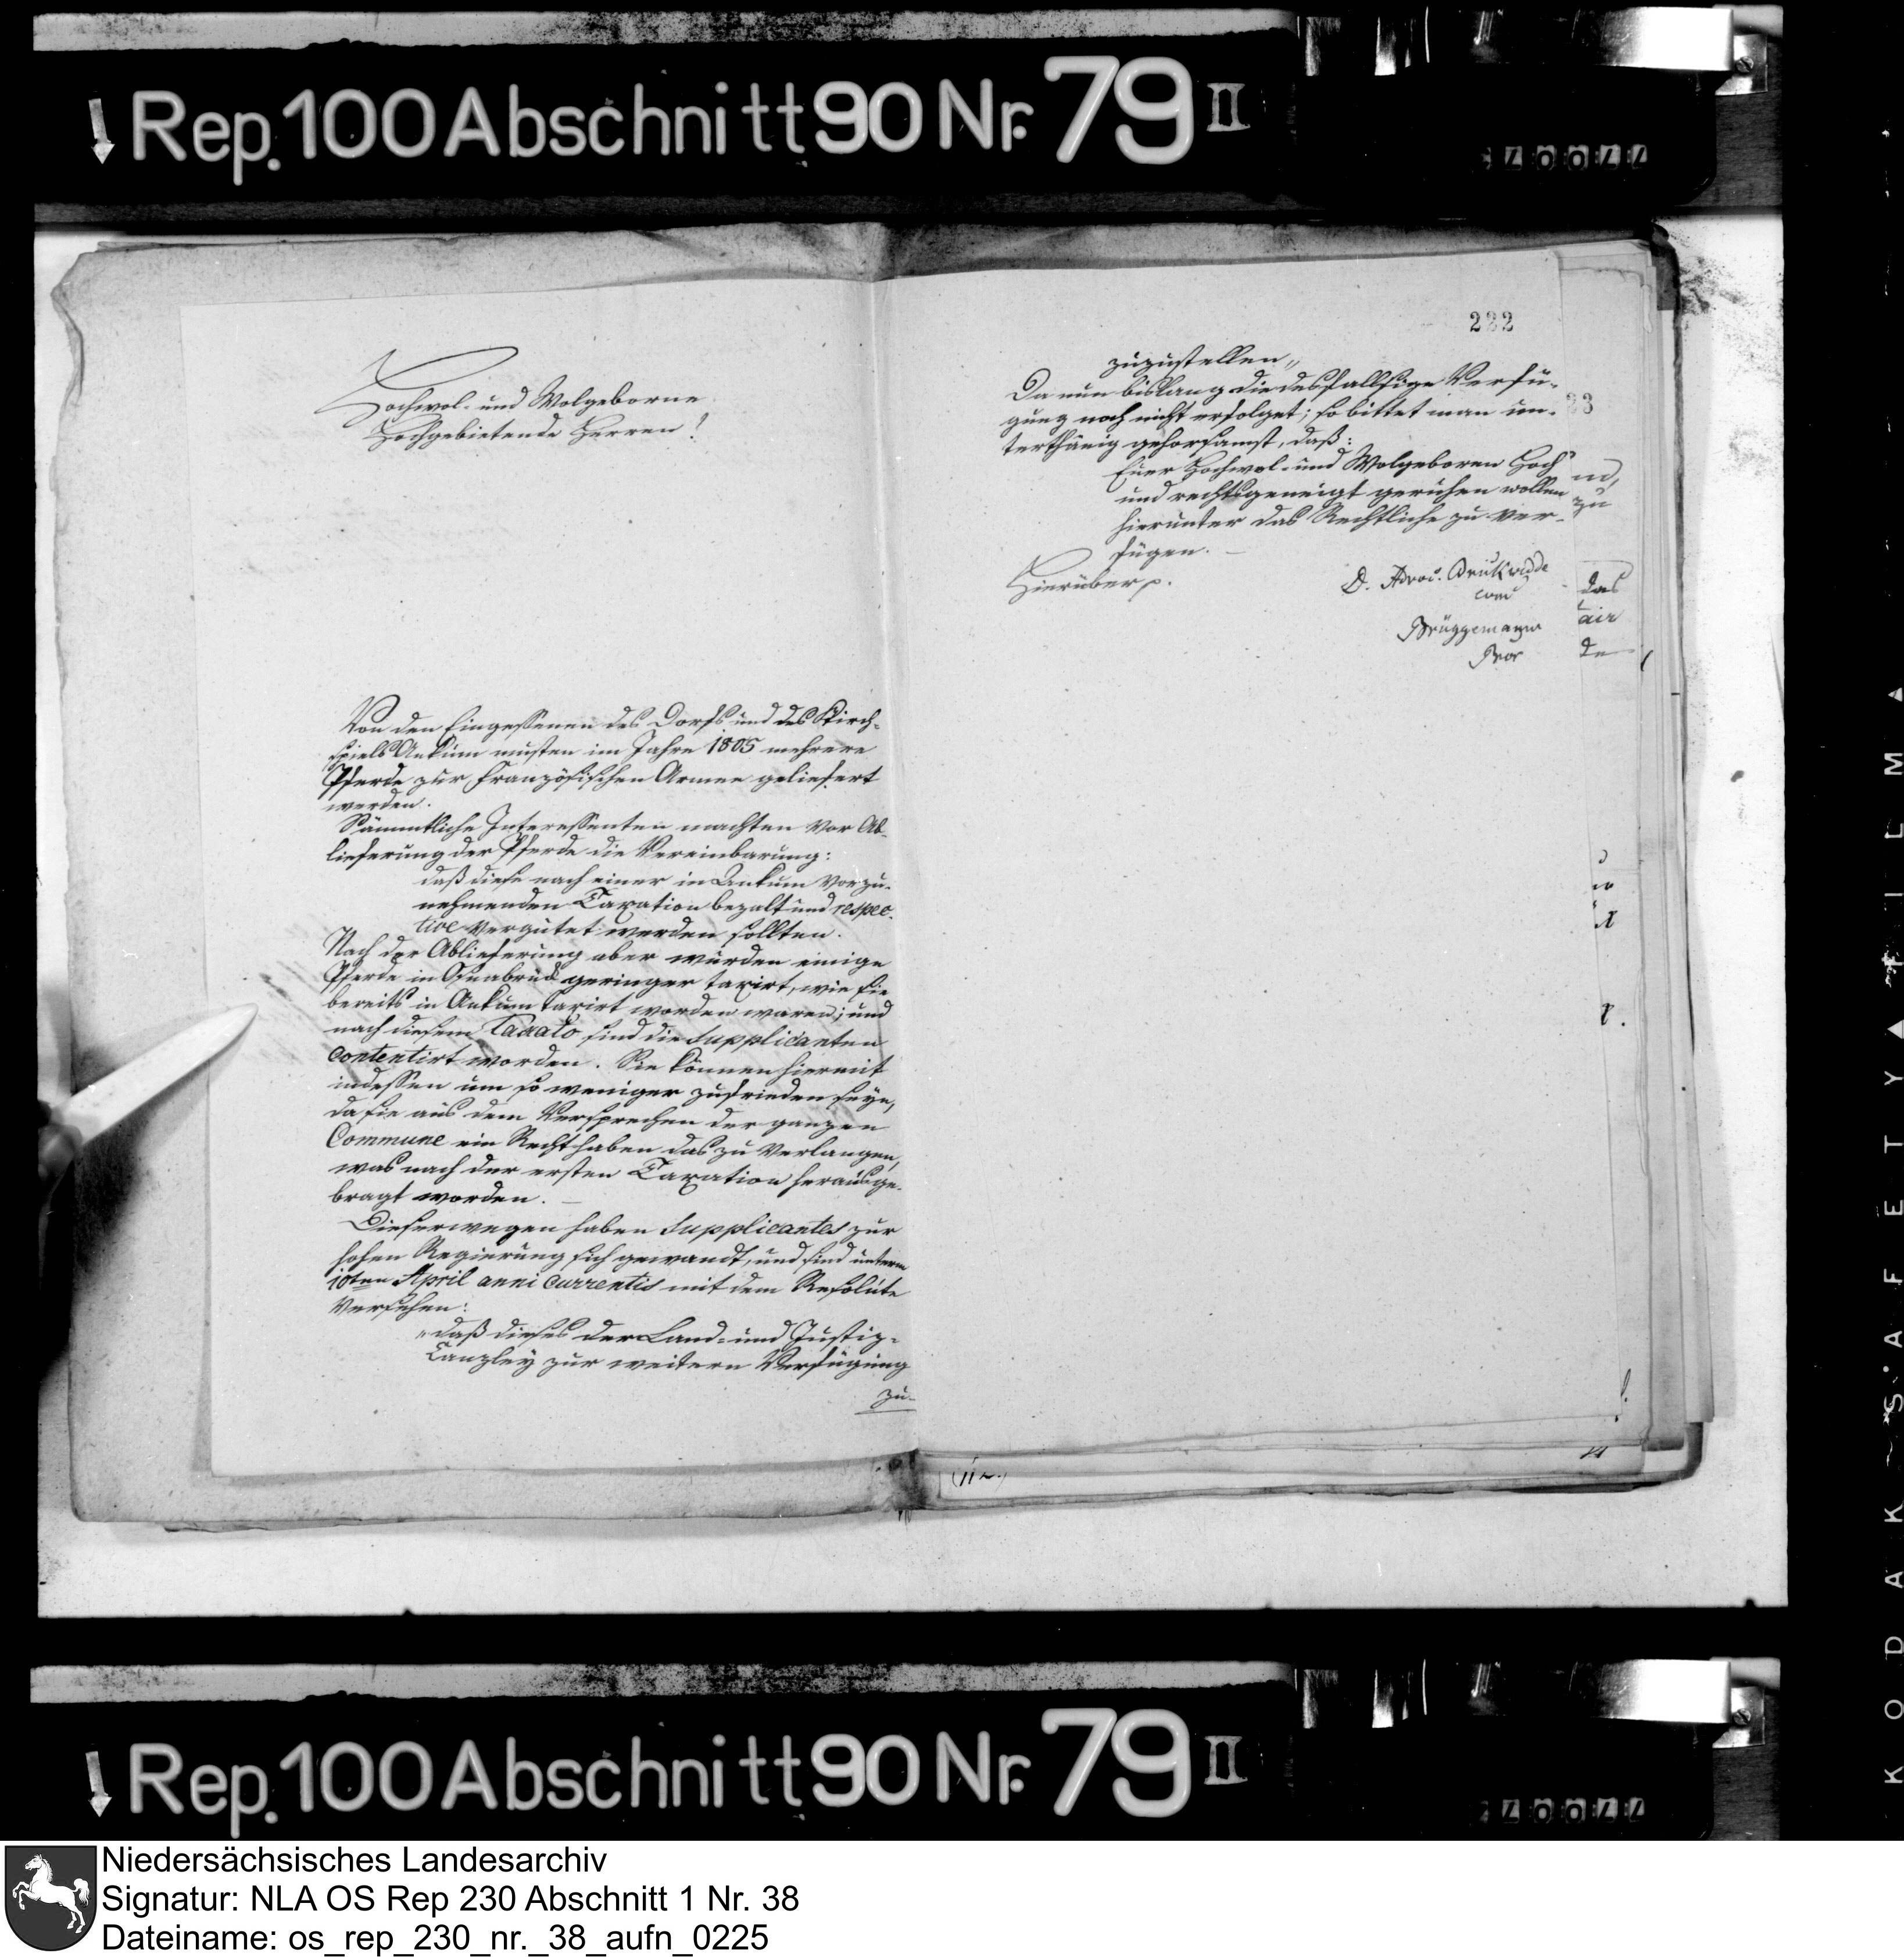 Rep. 100 Abschnitt 90 Nr. 79 II
222
Hochwol- und Wolgeborne
Hochgebietende Herren!
Von den Eingesessenen des Dorfs und des Kirch-
spiels Ankum musten im Jahre 1805 mehrere
Pferde zur Französischen Armee geliefert
werden.
Sämmtliche Interessenten machten vor Ab-
lieferung der Pferde die Vereinbarung:
daß diese nach einer in Ankum vorzu-
nehmenden Taxation bezalt und respec-
tive vergütet werden sollten.
Nach der Ablieferung aber wurden einige
Pferde in Osnabrück geringer taxirt, wie sie
bereits in Ankum taxirt worden waren; und
nach diesem Taxato sind die Supplicanten
contentirt worden. Sie können hiermit
indessen um so weniger zufrieden seyn,
da sie aus dem Versprechen der ganzen
Commune ein Recht haben das zu verlangen,
was nach der ersten Taxation herausge-
bragt worden. —
Dieserwegen haben Supplicantes zur
hohen Regierung sich gewandt, und sind unterm
10ten April anni currentis mit dem Resolute
versehen:
„daß dieses der Land- und Justiz-
Canzley zur weitern Verfügung
zu-
zuzustellen„
Da nun bislang die desfallsige Verfü-
gung noch nicht erfolget; so bittet man un-
terthänig gehorsamst, daß:
Euer Hochwol- und Wolgeboren Hoch
und rechtsgeneigt geruhen wollen
hierunter das Rechtliche zu ver-
fügen. —
Hierüber p.
D. Advoc. Bruckwedde
Brüggemann
das
air
de
zu
Rep. 100 Abschnitt 90 Nr. 79 II
KODAK SAFETY FILM
Niedersächsisches Landesarchiv
Signatur: NLA OS Rep 230 Abschnitt 1 Nr. 38
Dateiname: os_rep_230_nr._38_aufn_0225